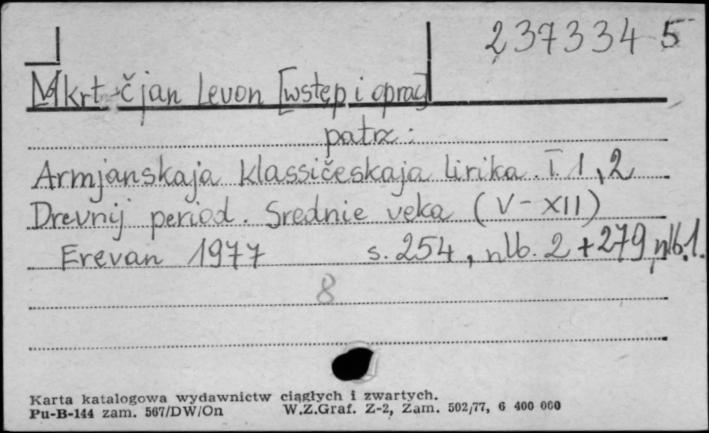 237334 5
Mkrt-čjan Levon [wstęp i oprac]
patrz:
Armjanskaja klassičeskaja lirika. T. 1, 2
Drevnij period. Srednie veka (V-XII)
Erevan 1977 s. 254, nlb. 2 + 279, nlb. 1.
8
Karta katalogowa wydawnictw ciągłych i zwartych.
Pu-B-144 zam. 567/DW/On W.Z.Graf. Z-2, Zam. 502/77, 6 400 000